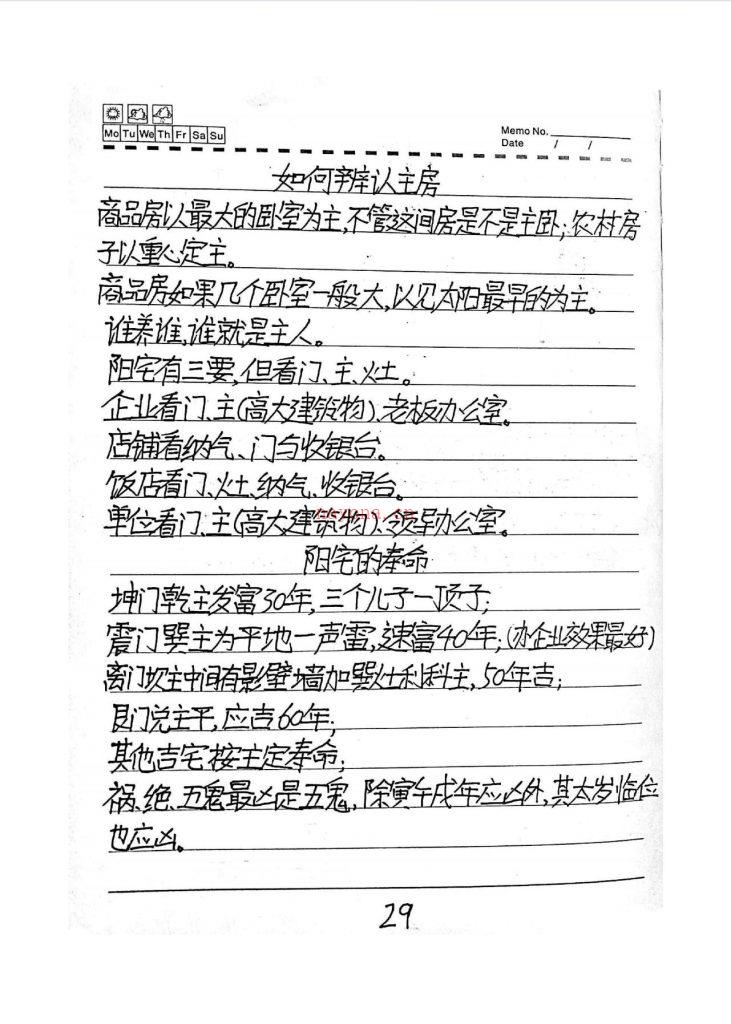 Mo Tu We Th Fr Sa Su
Memo No.
Date / /
如何辨认主房
商品房以最大的卧室为主,不管这间房是不是主卧;农村房
子以重心定主。
商品房如果几个卧室一般大,以见太阳最早的为主。
谁养谁,谁就是主人。
阳宅有三要,但看门、主、灶。
企业看门、主(高大建筑物)、老板办公室。
店铺看纳气、门与收银台。
饭店看门、灶、纳气、收银台。
单位看门、主(高大建筑物)、领导办公室。
阳宅的寿命
坤门乾主发富30年,三个儿子一顶子;
震门巽主为平地一声雷,速富40年;(办企业效果最好)
离门坎主中间有影壁墙加巽灶利科主,50年吉;
艮门兑主平,应吉60年;
其他吉宅按主定寿命;
祸、绝、五鬼最凶是五鬼,除寅午戌年应凶外,其太岁临位
也应凶。
29